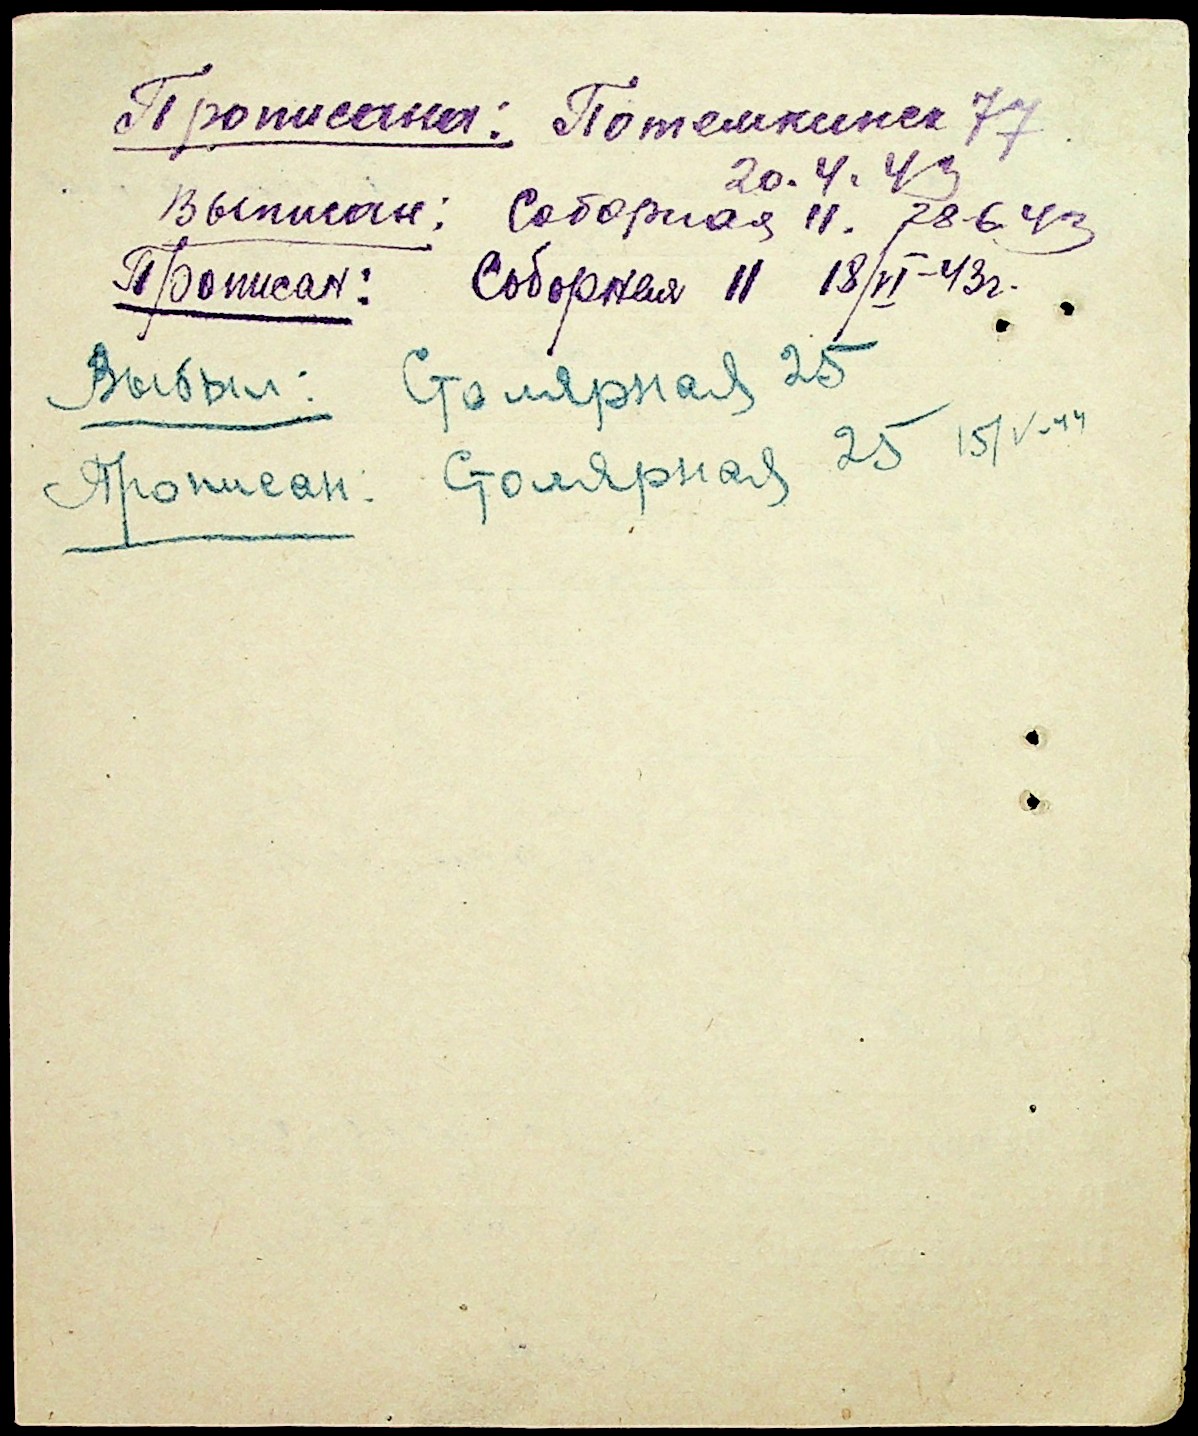 Прописана: Потемкинск 77
20. 4. 43
Выписан: Соборная 11. 28 6 43
Прописан: Соборная 11 18/VI-43г.
Выбыл: Столярная 25
Прописан: Столярная 25 15/V-44